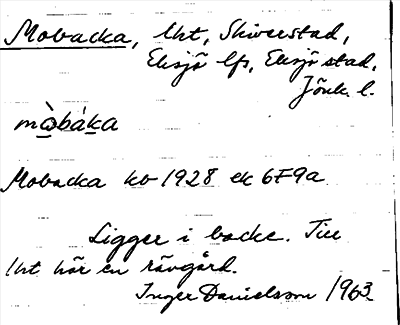 Mobacka, lht, Skiverstad,
Eksjö lfs, Eksjö stad,
Jönk. l.
mòbáka
Mobacka kb 1928 ek 6F9a
Ligger i backe. Till
lht hör en rävgård.
Inger Danielsson 1963